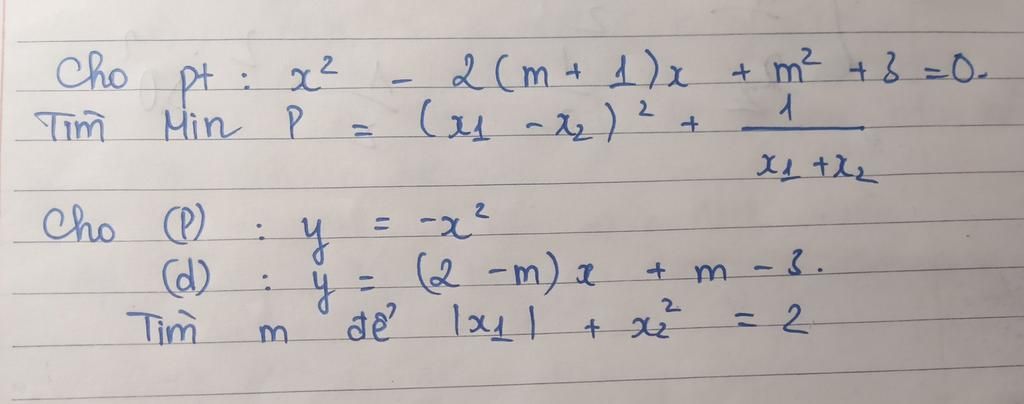 Cho pt : x² - 2(m + 1)x + m² + 3 = 0.
Tìm Min P = (x1 - x2)² + 1/(x1 + x2)
Cho (P) : y = -x²
(d) : y = (2 - m)x + m - 3.
Tìm m để |x1| + x2² = 2